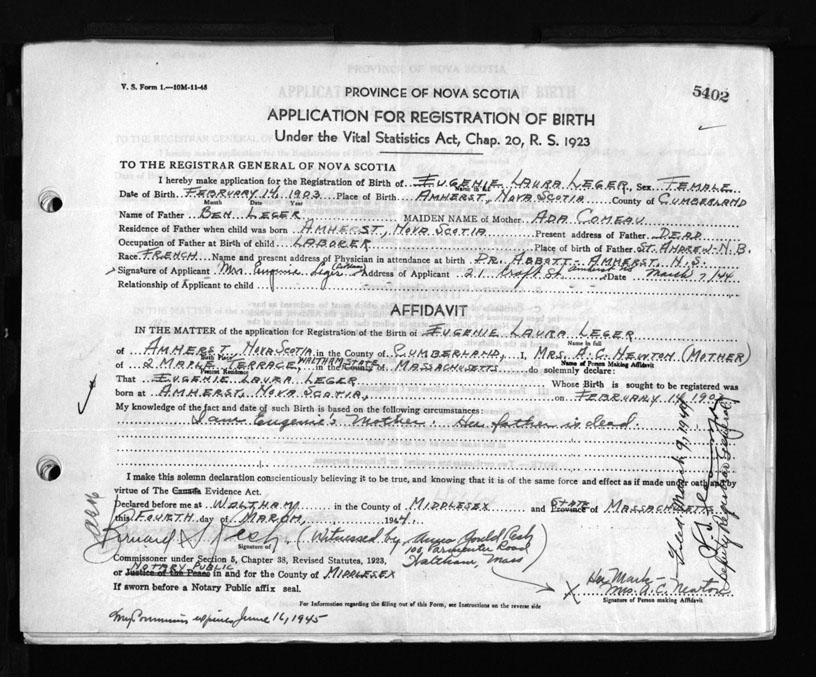 V. S. Form 1.—10M-11-43
5402
PROVINCE OF NOVA SCOTIA
APPLICATION FOR REGISTRATION OF BIRTH
Under the Vital Statistics Act, Chap. 20, R. S. 1923
TO THE REGISTRAR GENERAL OF NOVA SCOTIA
I hereby make application for the Registration of Birth of EUGENIE LAURA LEGER, Sex FEMALE
Name in full
Date of Birth FEBRUARY 14, 1903 Place of Birth AMHERST, NOVA SCOTIA County of CUMBERLAND
Month Date Year
Name of Father BEN LEGER MAIDEN NAME of Mother ADA COMEAU
Residence of Father when child was born AMHERST, NOVA SCOTIA Present address of Father DEAD
Occupation of Father at Birth of child LABORER Place of birth of Father ST. ANDREW-N.B.
Race FRENCH Name and present address of Physician in attendance at birth DR. ABBOTT - AMHERST, N.S.
Signature of Applicant Mrs. Eugenie Leger Address of Applicant 21 Croft St. Amherst NS Date March 7/44
Relationship of Applicant to child
AFFIDAVIT
IN THE MATTER of the application for Registration of the Birth of EUGENIE LAURA LEGER
Name in full
of AMHERST, NOVA SCOTIA in the County of CUMBERLAND, I, MRS. A.C. NEWTON (MOTHER)
Birth Place Name of Person Making Affidavit
of 2 MAPLE TERRACE, WALTHAM STATE in the County of MASSACHUSETTS do solemnly declare:
Present Residence
That EUGENIE LAURA LEGER Whose Birth is sought to be registered was
born at AMHERST, NOVA SCOTIA, on FEBRUARY 14 190
My knowledge of the fact and date of such Birth is based on the following circumstances:
I am Eugenie's Mother. Her father is dead.
I make this solemn declaration conscientiously believing it to be true, and knowing that it is of the same force and effect as if made under oath by
virtue of The Canada Evidence Act.
Declared before me at WALTHAM in the County of MIDDLESEX and STATE Province of MASSACHUSETTS
this FOURTH day of MARCH, 1944.
Bernard (Witnessed by Gould
Signature of
109 Parmenter Road
Waltham, Mass)
Commissioner under Section 5, Chapter 38, Revised Statutes, 1923,
NOTARY PUBLIC
or Justice of the Peace in and for the County of MIDDLESEX
If sworn before a Notary Public affix seal.
X Her Mark-
Mrs. A. C. Newton
Signature of Person making Affidavit
For Information regarding the filling out of this Form, see Instructions on the reverse side
My Commission expires June 16, 1945
Filed March 9, 1944
Deputy Registrar General